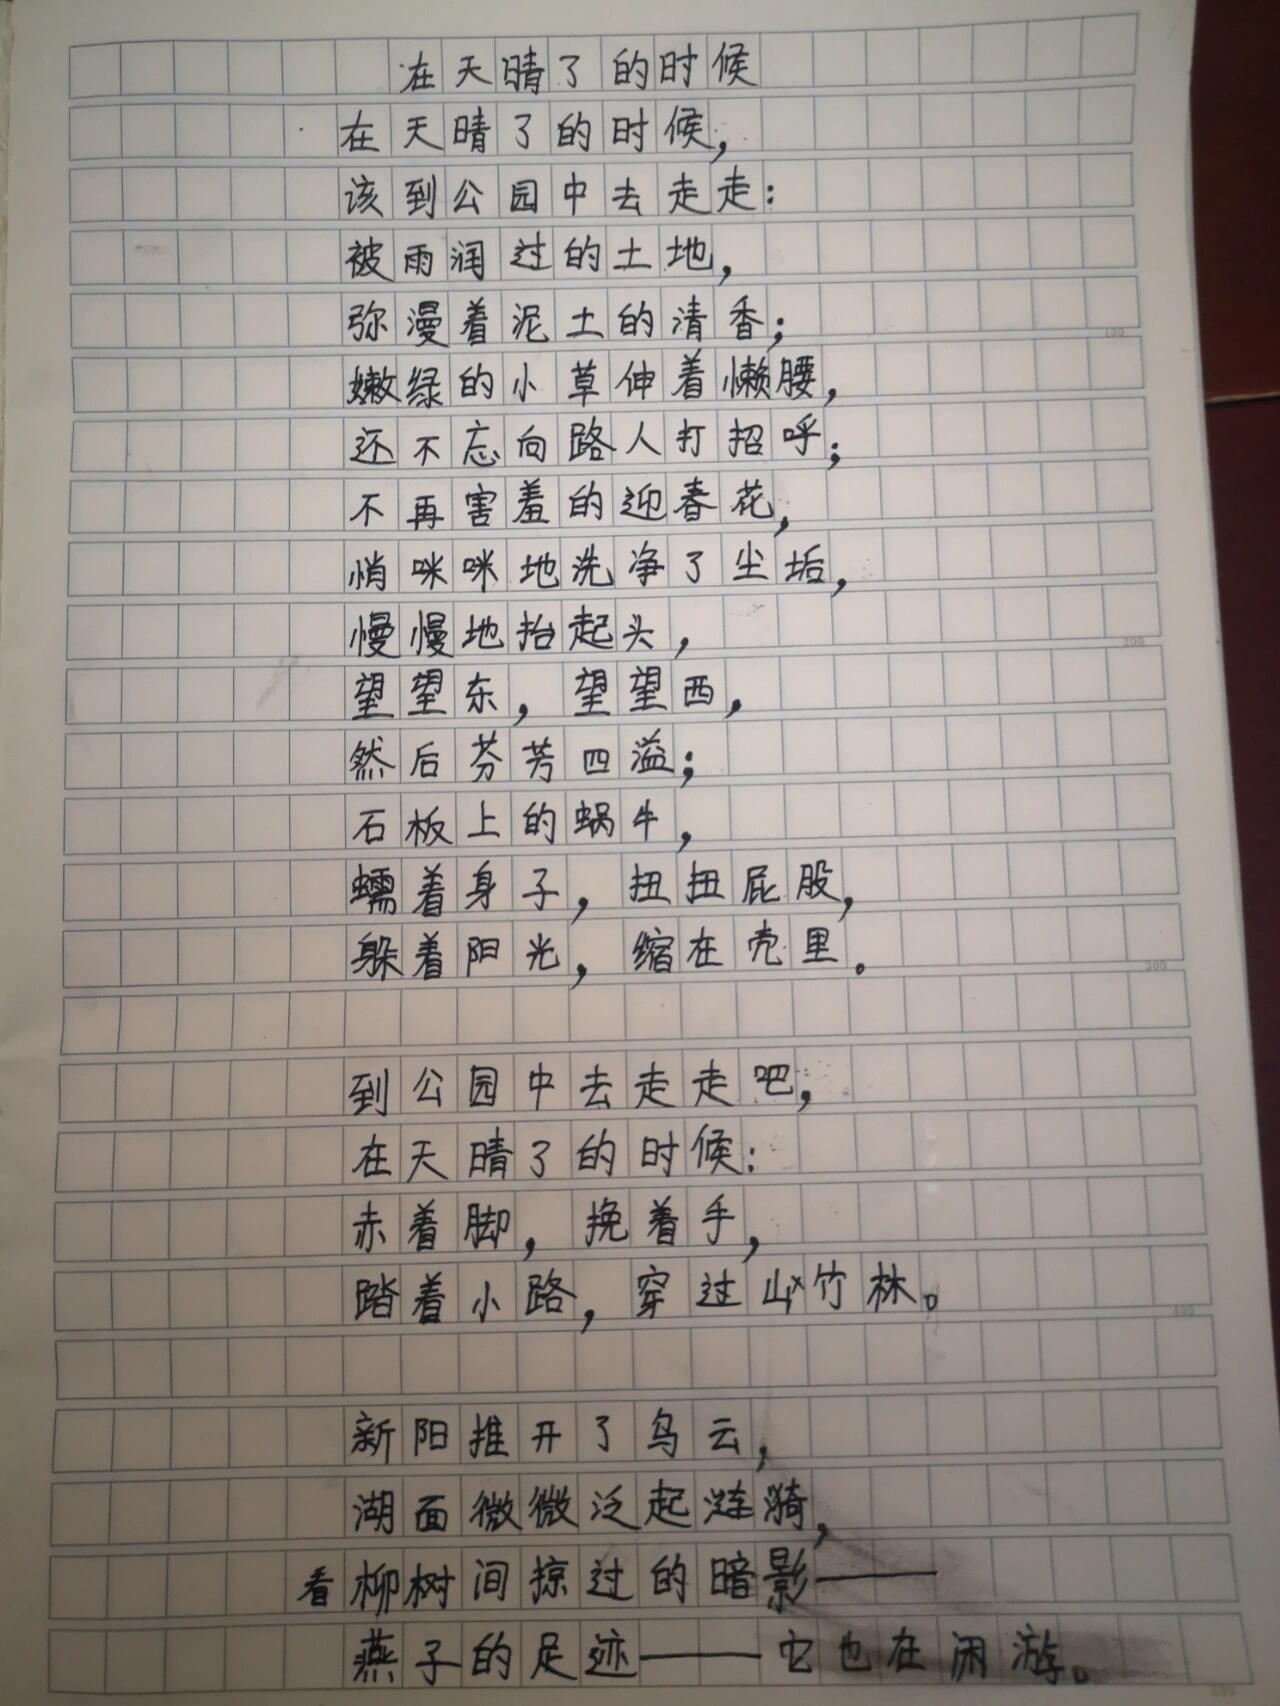 在天晴了的时候
在天晴了的时候,
该到公园中去走走:
被雨润过的土地,
弥漫着泥土的清香;
嫩绿的小草伸着懒腰,
还不忘向路人打招呼;
不再害羞的迎春花,
悄咪咪地洗净了尘垢,
慢慢地抬起头,
望望东,望望西,
然后芬芳四溢;
石板上的蜗牛,
蠕着身子,扭扭屁股,
躲着阳光,缩在壳里。
到公园中去走走吧,
在天晴了的时候:
赤着脚,挽着手,
踏着小路,穿过山竹林。
新阳推开了乌云,
湖面微微泛起涟漪,
看柳树间掠过的暗影——
燕子的足迹——它也在闲游。